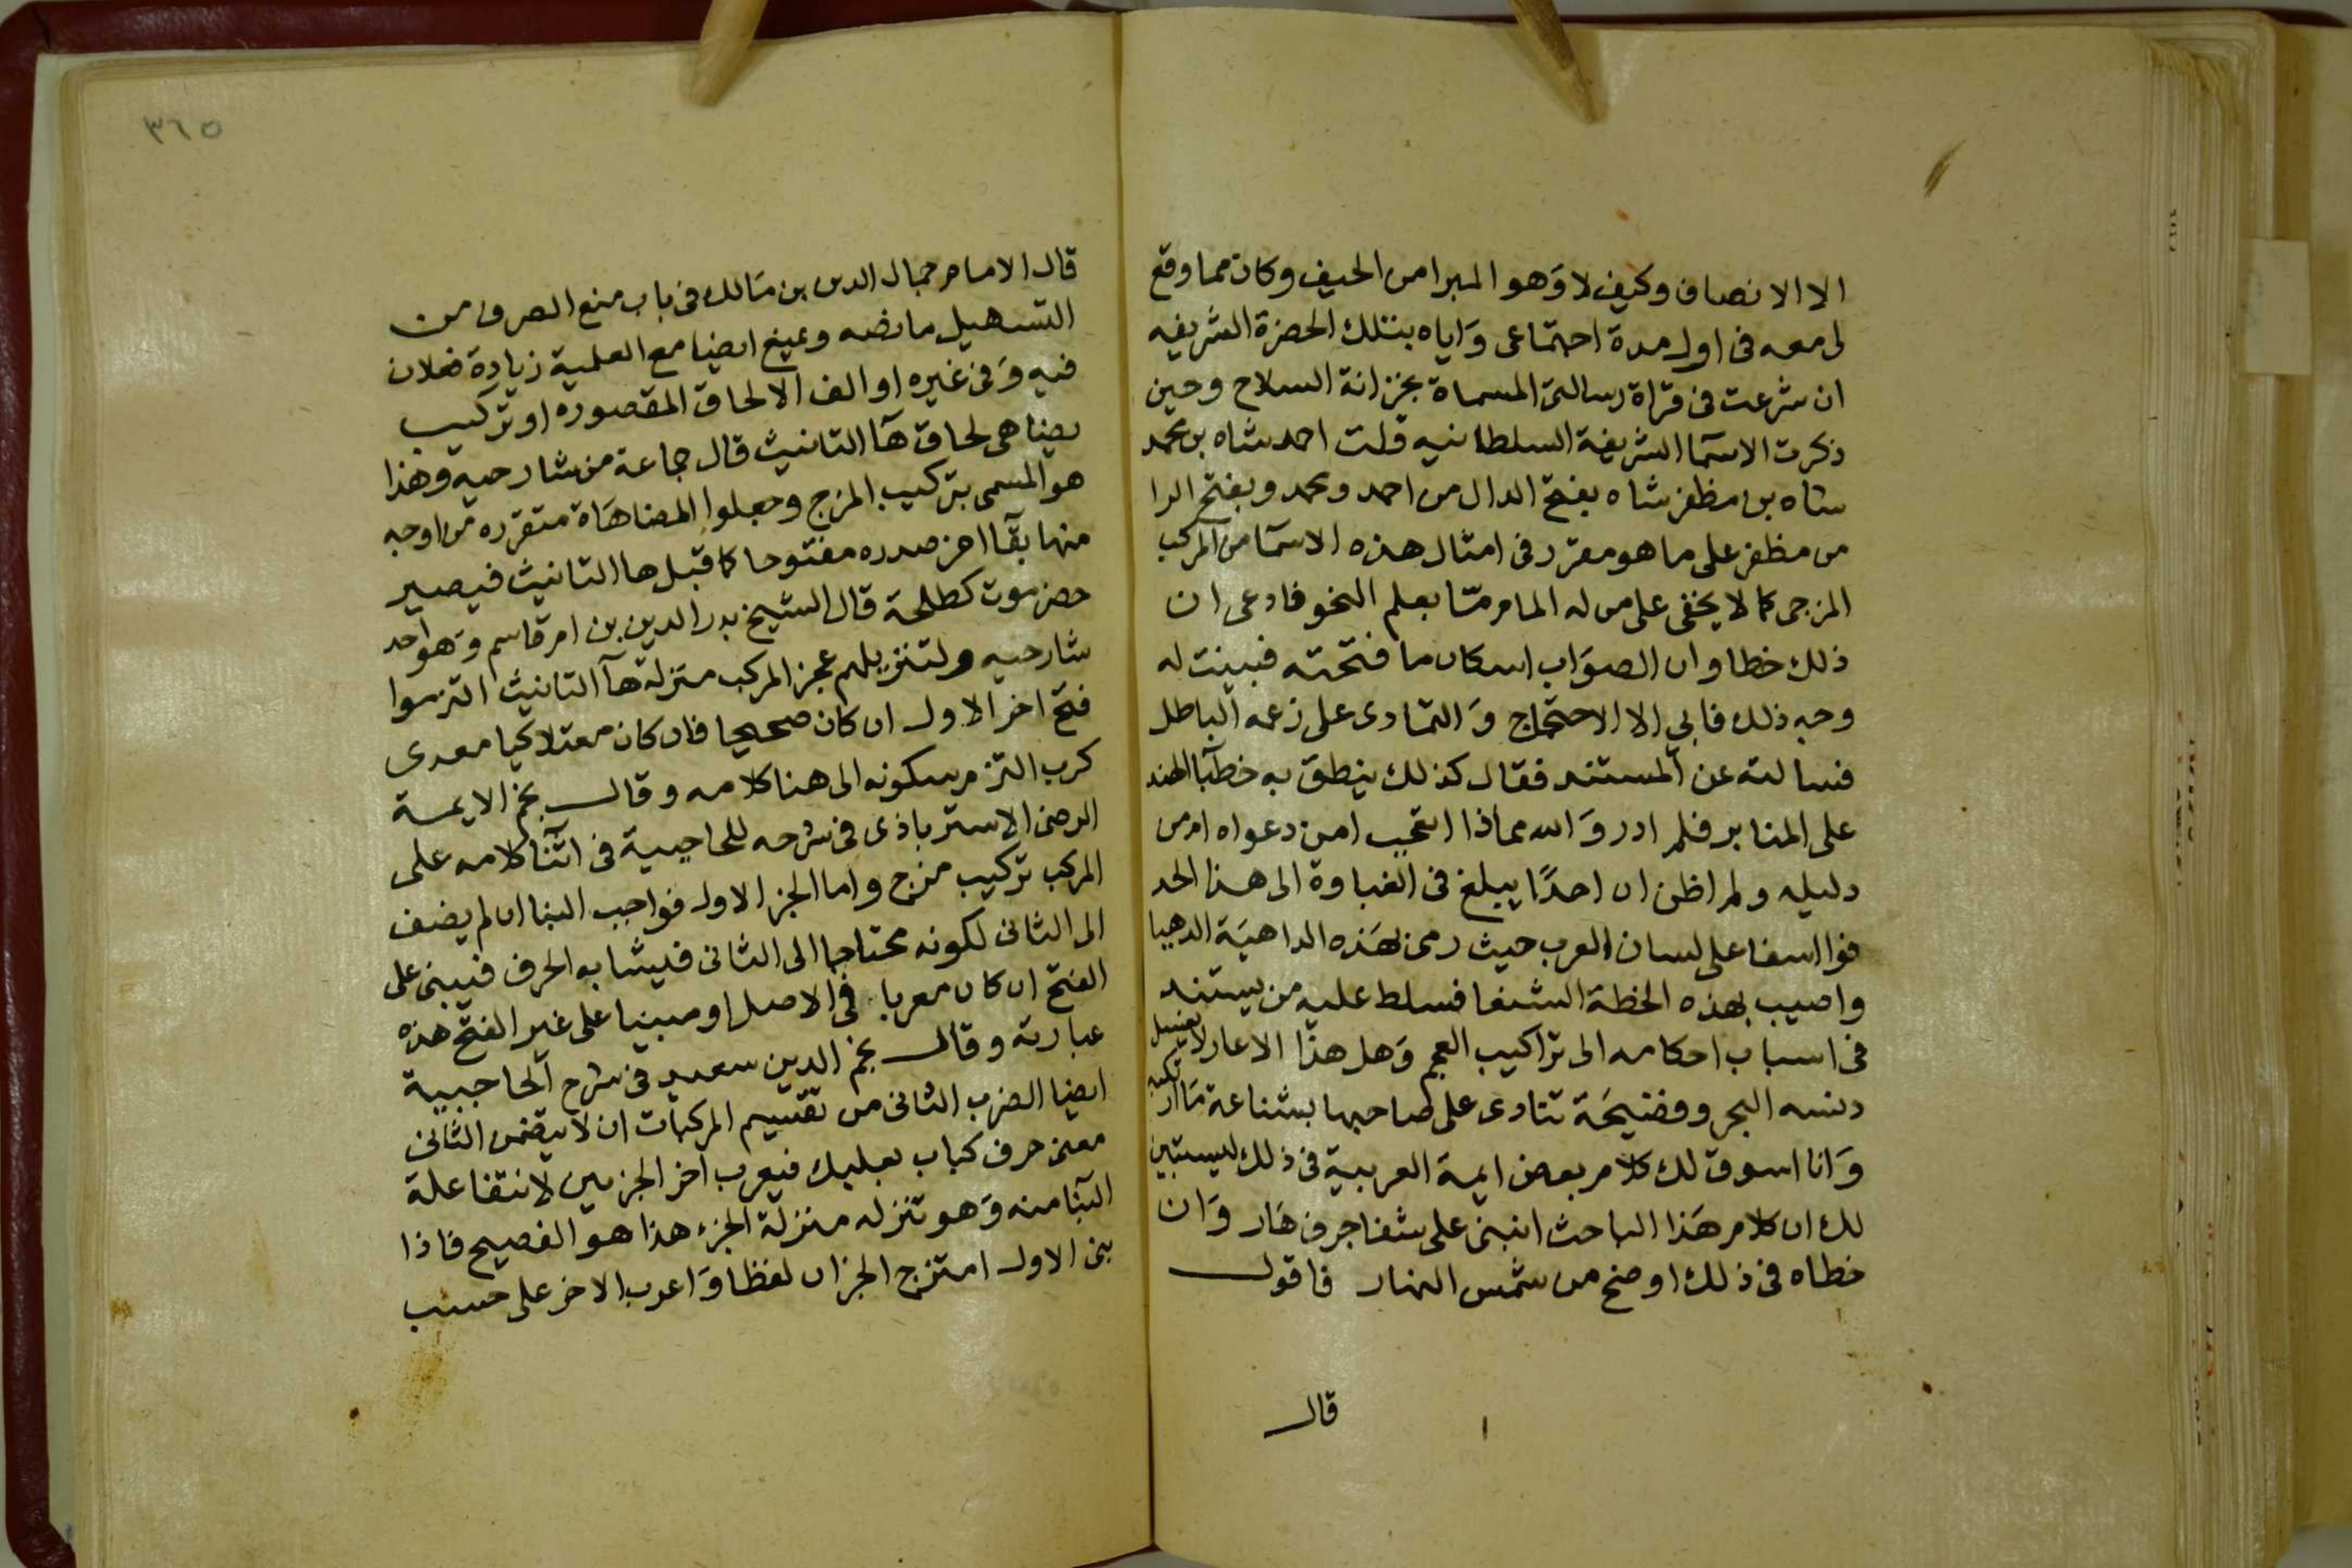 الا الانصاف وكيف لا وَهو المبرا من الحيف وكان مما وقع
لى معه فى اول مدة اجتماعى وَاياه بتلك الحضرة الشريفه
ان شرعت فى قراة رسالتى المسماة بخزانة السلاح وحين
ذكرت الاسمآ الشريفة السلطانيه قلت احمد شاه بن محمد
شاه بن مظفر شاه بفتح الدال من احمد ومحمد وبفتح الرا
من مظفر على ما هو مقرر فى امثال هذه الاسمآ من المركب
المزجى كما لا يخفى على من له المام مّا بعلم النحو فادعى ان
ذلك خطا وان الصوَاب اسكان ما فتحته فبينت له
وجه ذلك فابى الا الاحتجاج وَالتمادى على زعمه الباطل
فسالته عن المستند فقال كذلك ينطق به خطبآ الهند
على المنابر فلم ادر وَالله مماذا اتعجب امن دعواه ام من
دليله ولم اظن ان احدًا يبلغ فى الغباوة الى هذا الحد
فوا اسفا على لسان العرب حيث رمى بهَذه الداهيَة الدهيا
واصيب بهذه الخطة الشنعا فسلط عليه من يستند
فى اسباب احكامه الى تراكيب العجم وَهل هذا الا عار لا يغسل
دنسه البحر وفضيحَة تنادى على صاحبها بشناعة مَا ارتكبه
وَانا اسوق لك كلام بعض ايمة العربية فى ذلك ليستبين
لك ان كلام هَذا الباحث انبنى على شفا جرف هَار وَان
خطاه فى ذلك اوضح من شمس النهار فاقول
قال
٣٦٥
قال الامام جمال الدين بن مَالك فى باب منع الصرف من
التسهيل ما نصه ويمنع ايضا مع العلمية زيادة فعلان
فيه وَفى غيره او الف الالحاق المقصوره او تركيب
يضاهى لحاق هَآ التانيث قال جماعة من شارحيه وهذا
هو المسمى بتركيب المزج وجعلوا المضاهَاة متقرره من اوجه
منها بقآ اخر صدره مفتوحا كما قبل ها التانيث فيصير
حضرموت كطلحة قال الشيخ بدر الدين بن ام قاسم وَهو احد
شارحيه ولتنزيلهم عجز المركب منزلة هآ التانيث التزموا
فتح اخر الاول ان كان صحيحا فان كان معتلا كيا معدى
كرب التزم سكونه الى هنا كلامه وقال نجم الايمة
الرضى الاستراباذى فى شرحه للحاجبية فى اثنآ كلامه على
المركب تركيب مزج واما الجز الاول فواجب البنا ان لم يضف
الى الثانى لكونه محتاجا الى الثانى فيشابه الحرف فيبنى على
الفتح ان كان معربا فى الاصل او مبنيا على غير الفتح هذه
عبارته وقال نجم الدين سعيد فى شرح الحاجبية
ايضا الضرب الثانى من تقسيم المركبات ان لا يتضمن الثانى
معنى حرف كباب بعلبك فيعرب اخر الجزءين لانتفا علة
البنآ منه وَهو تنزله منزلة الجزء هذا هو الفصيح فاذا
بنى الاول امتزج الجزان لفظا وَاعرب الاخر على حسب